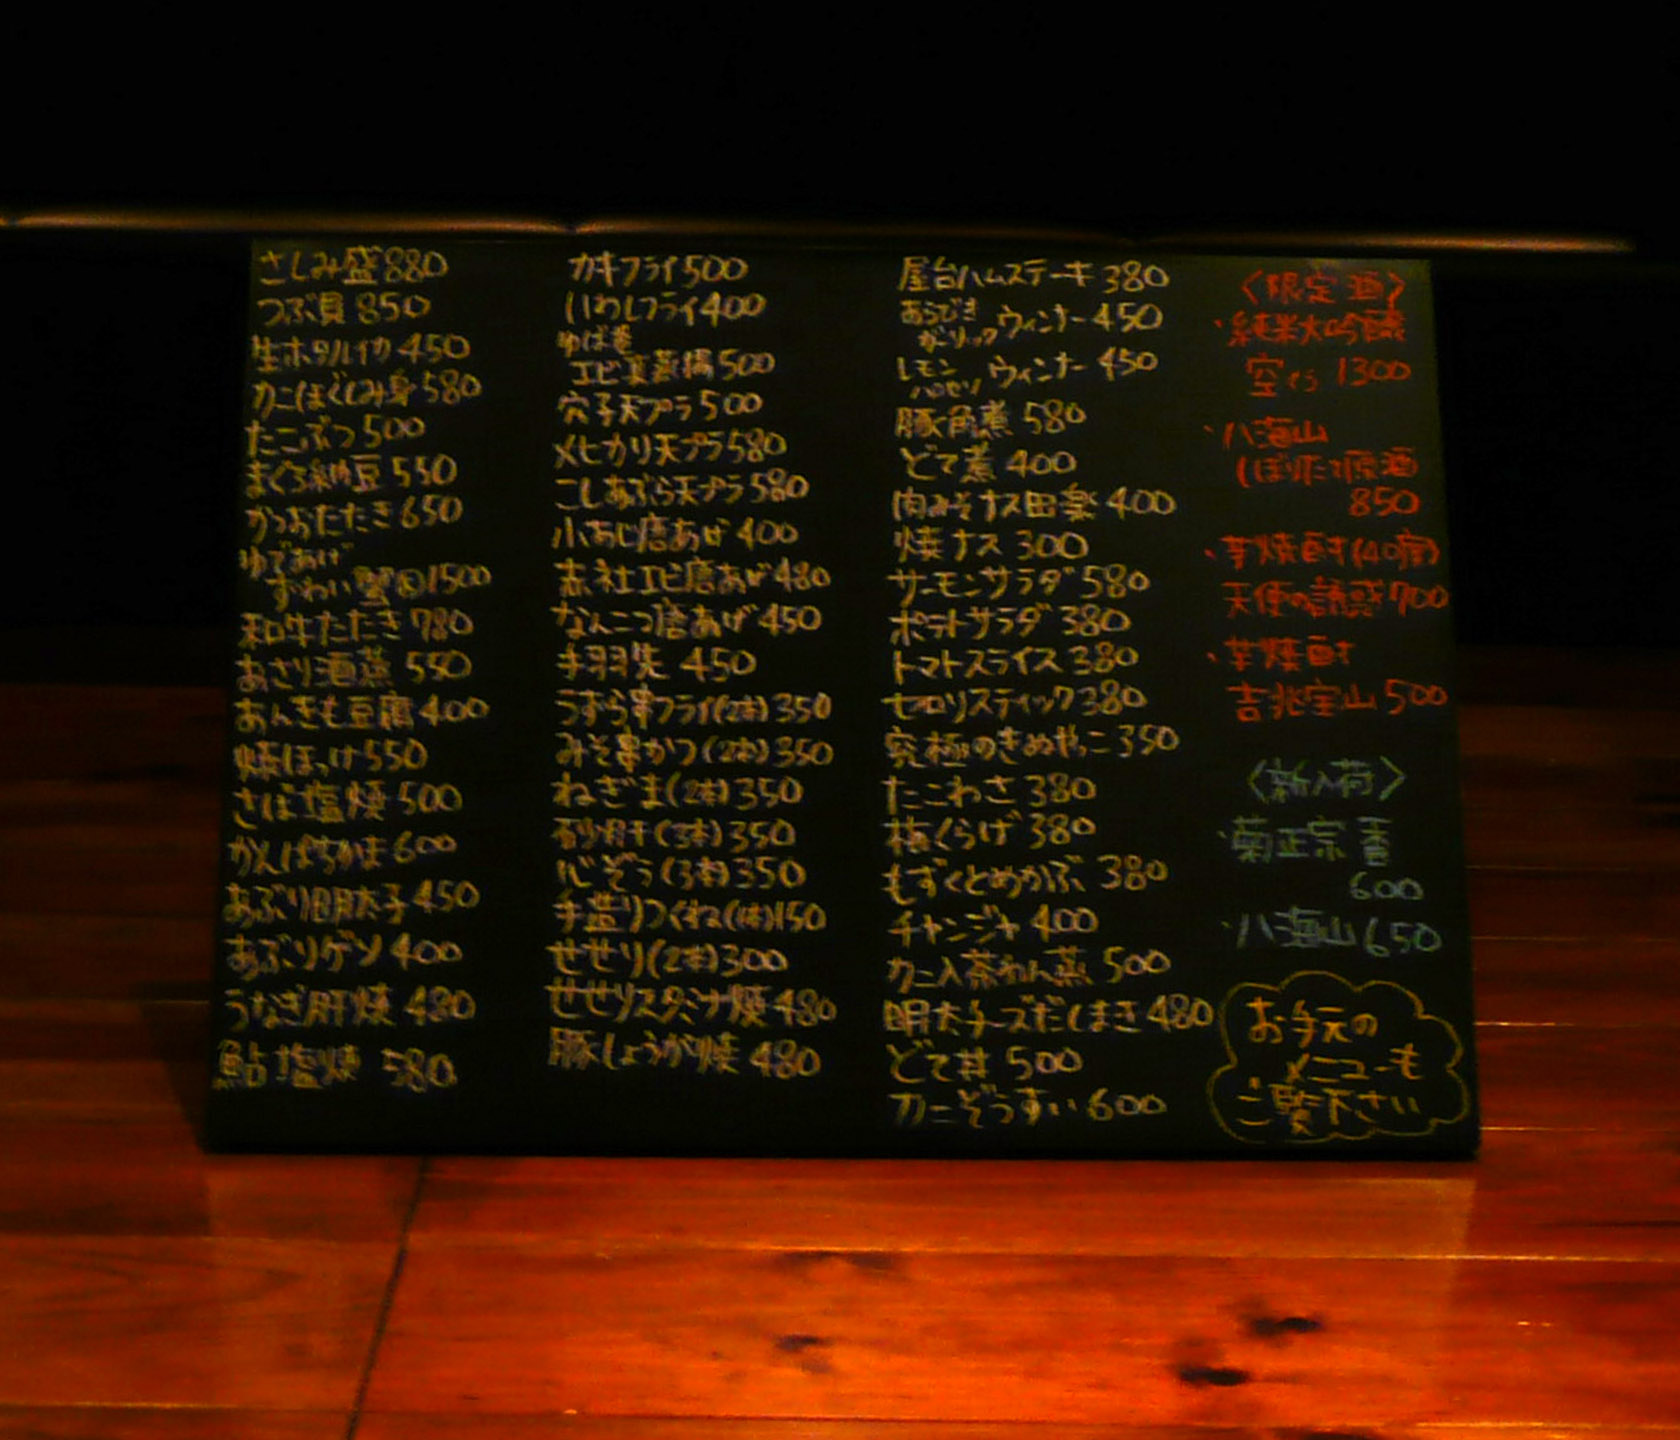 さしみ盛 880
つぶ貝 850
生ホタルイカ 450
カニほぐしみ身 580
たこぶつ 500
まぐろ納豆 550
かつおたたき 650
ゆであげ
ずわい蟹 1500
和牛たたき 780
あさり酒蒸 550
あんきも豆腐 400
焼ほっけ 550
さば塩焼 500
かんぱちかま 600
あぶり明太子 450
あぶりゲソ 400
うなぎ肝焼 480
鮎塩焼 580
カキフライ 500
いわしフライ 400
ゆば巻
エビ真蒸揚 500
穴子天プラ 500
メヒカリ天プラ 580
こしあぶら天プラ 580
小あじ唐あげ 400
赤社エビ唐あげ 480
なんこつ唐あげ 450
手羽先 450
うずら串フライ(2本) 350
みそ串かつ(2本) 350
ねぎま(2本) 350
砂肝(3本) 350
心ぞう(3本) 350
手造りつくね(1本) 150
せせり(2本) 300
せせりスタミナ焼 480
豚しょうが焼 480
屋台ハムステーキ 380
あらびき
ガーリック ウィンナー 450
レモン
パセリ ウィンナー 450
豚角煮 580
どて煮 400
肉みそナス田楽 400
焼ナス 300
サーモンサラダ 580
ポテトサラダ 380
トマトスライス 380
セロリスティック 380
究極のきぬやっこ 350
たこわさ 380
梅くらげ 380
もずくとめかぶ 380
チャンジャ 400
カニ入茶わん蒸 500
明太チーズだしまき 480
どて丼 500
カニぞうすい 600
〈限定酒〉
・純米大吟醸
空 1300
・八海山
しぼりたて原酒
850
・芋焼酎(40度)
天使の誘惑 700
・芋焼酎
吉兆宝山 500
〈新入荷〉
・菊正宗 香
600
・八海山 650
お手元の
メニューも
ご覧下さい